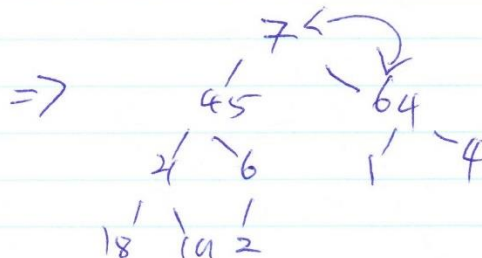 7
=> 45 64
21 6 1 4
18 19 2